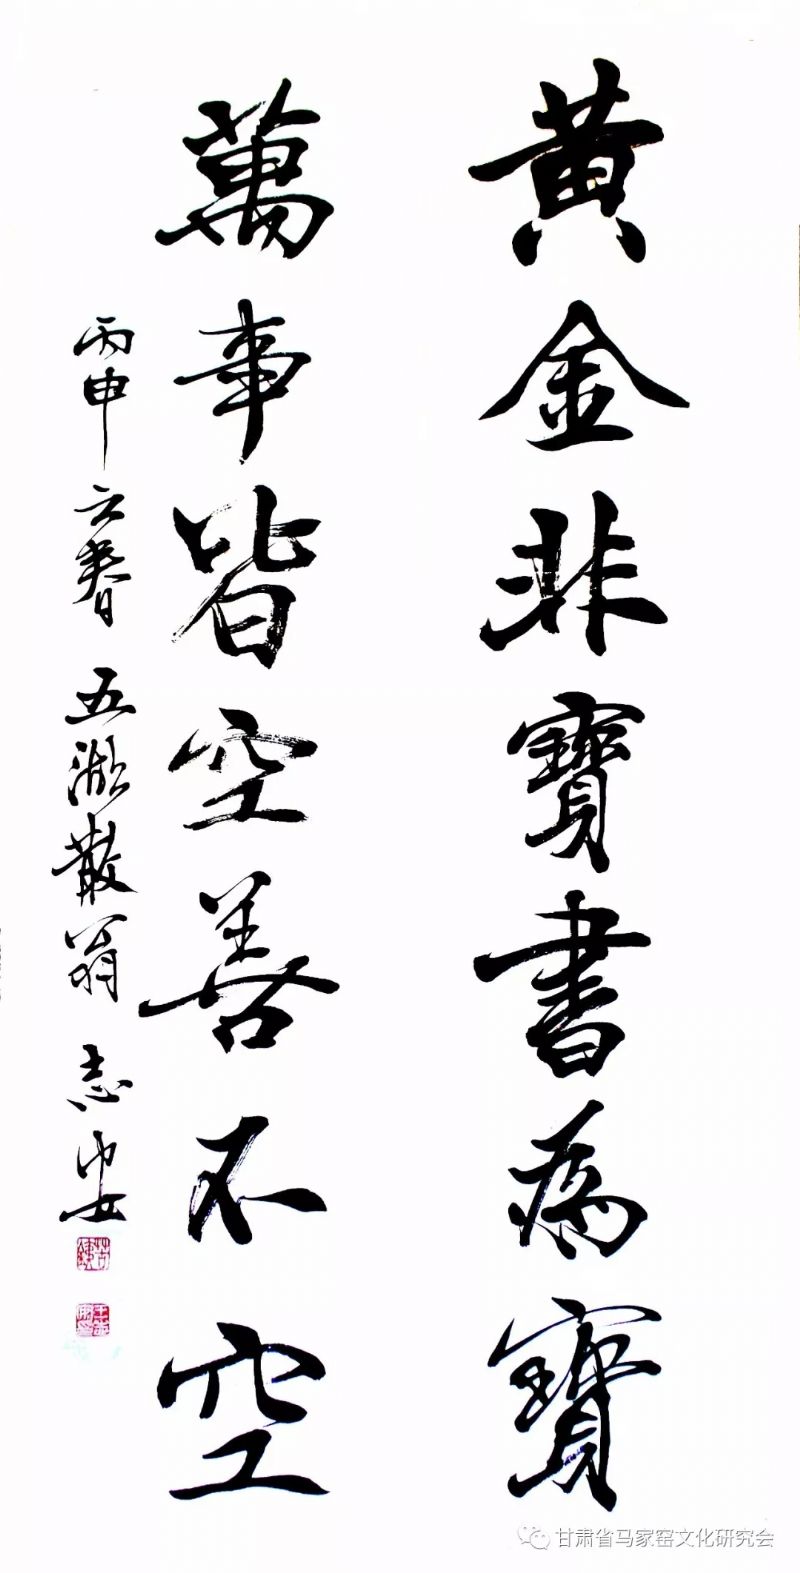 黄金非寶書為寶
萬事皆空善不空
丙申立春五散翁志安
甘肃省马家窑文化研究会